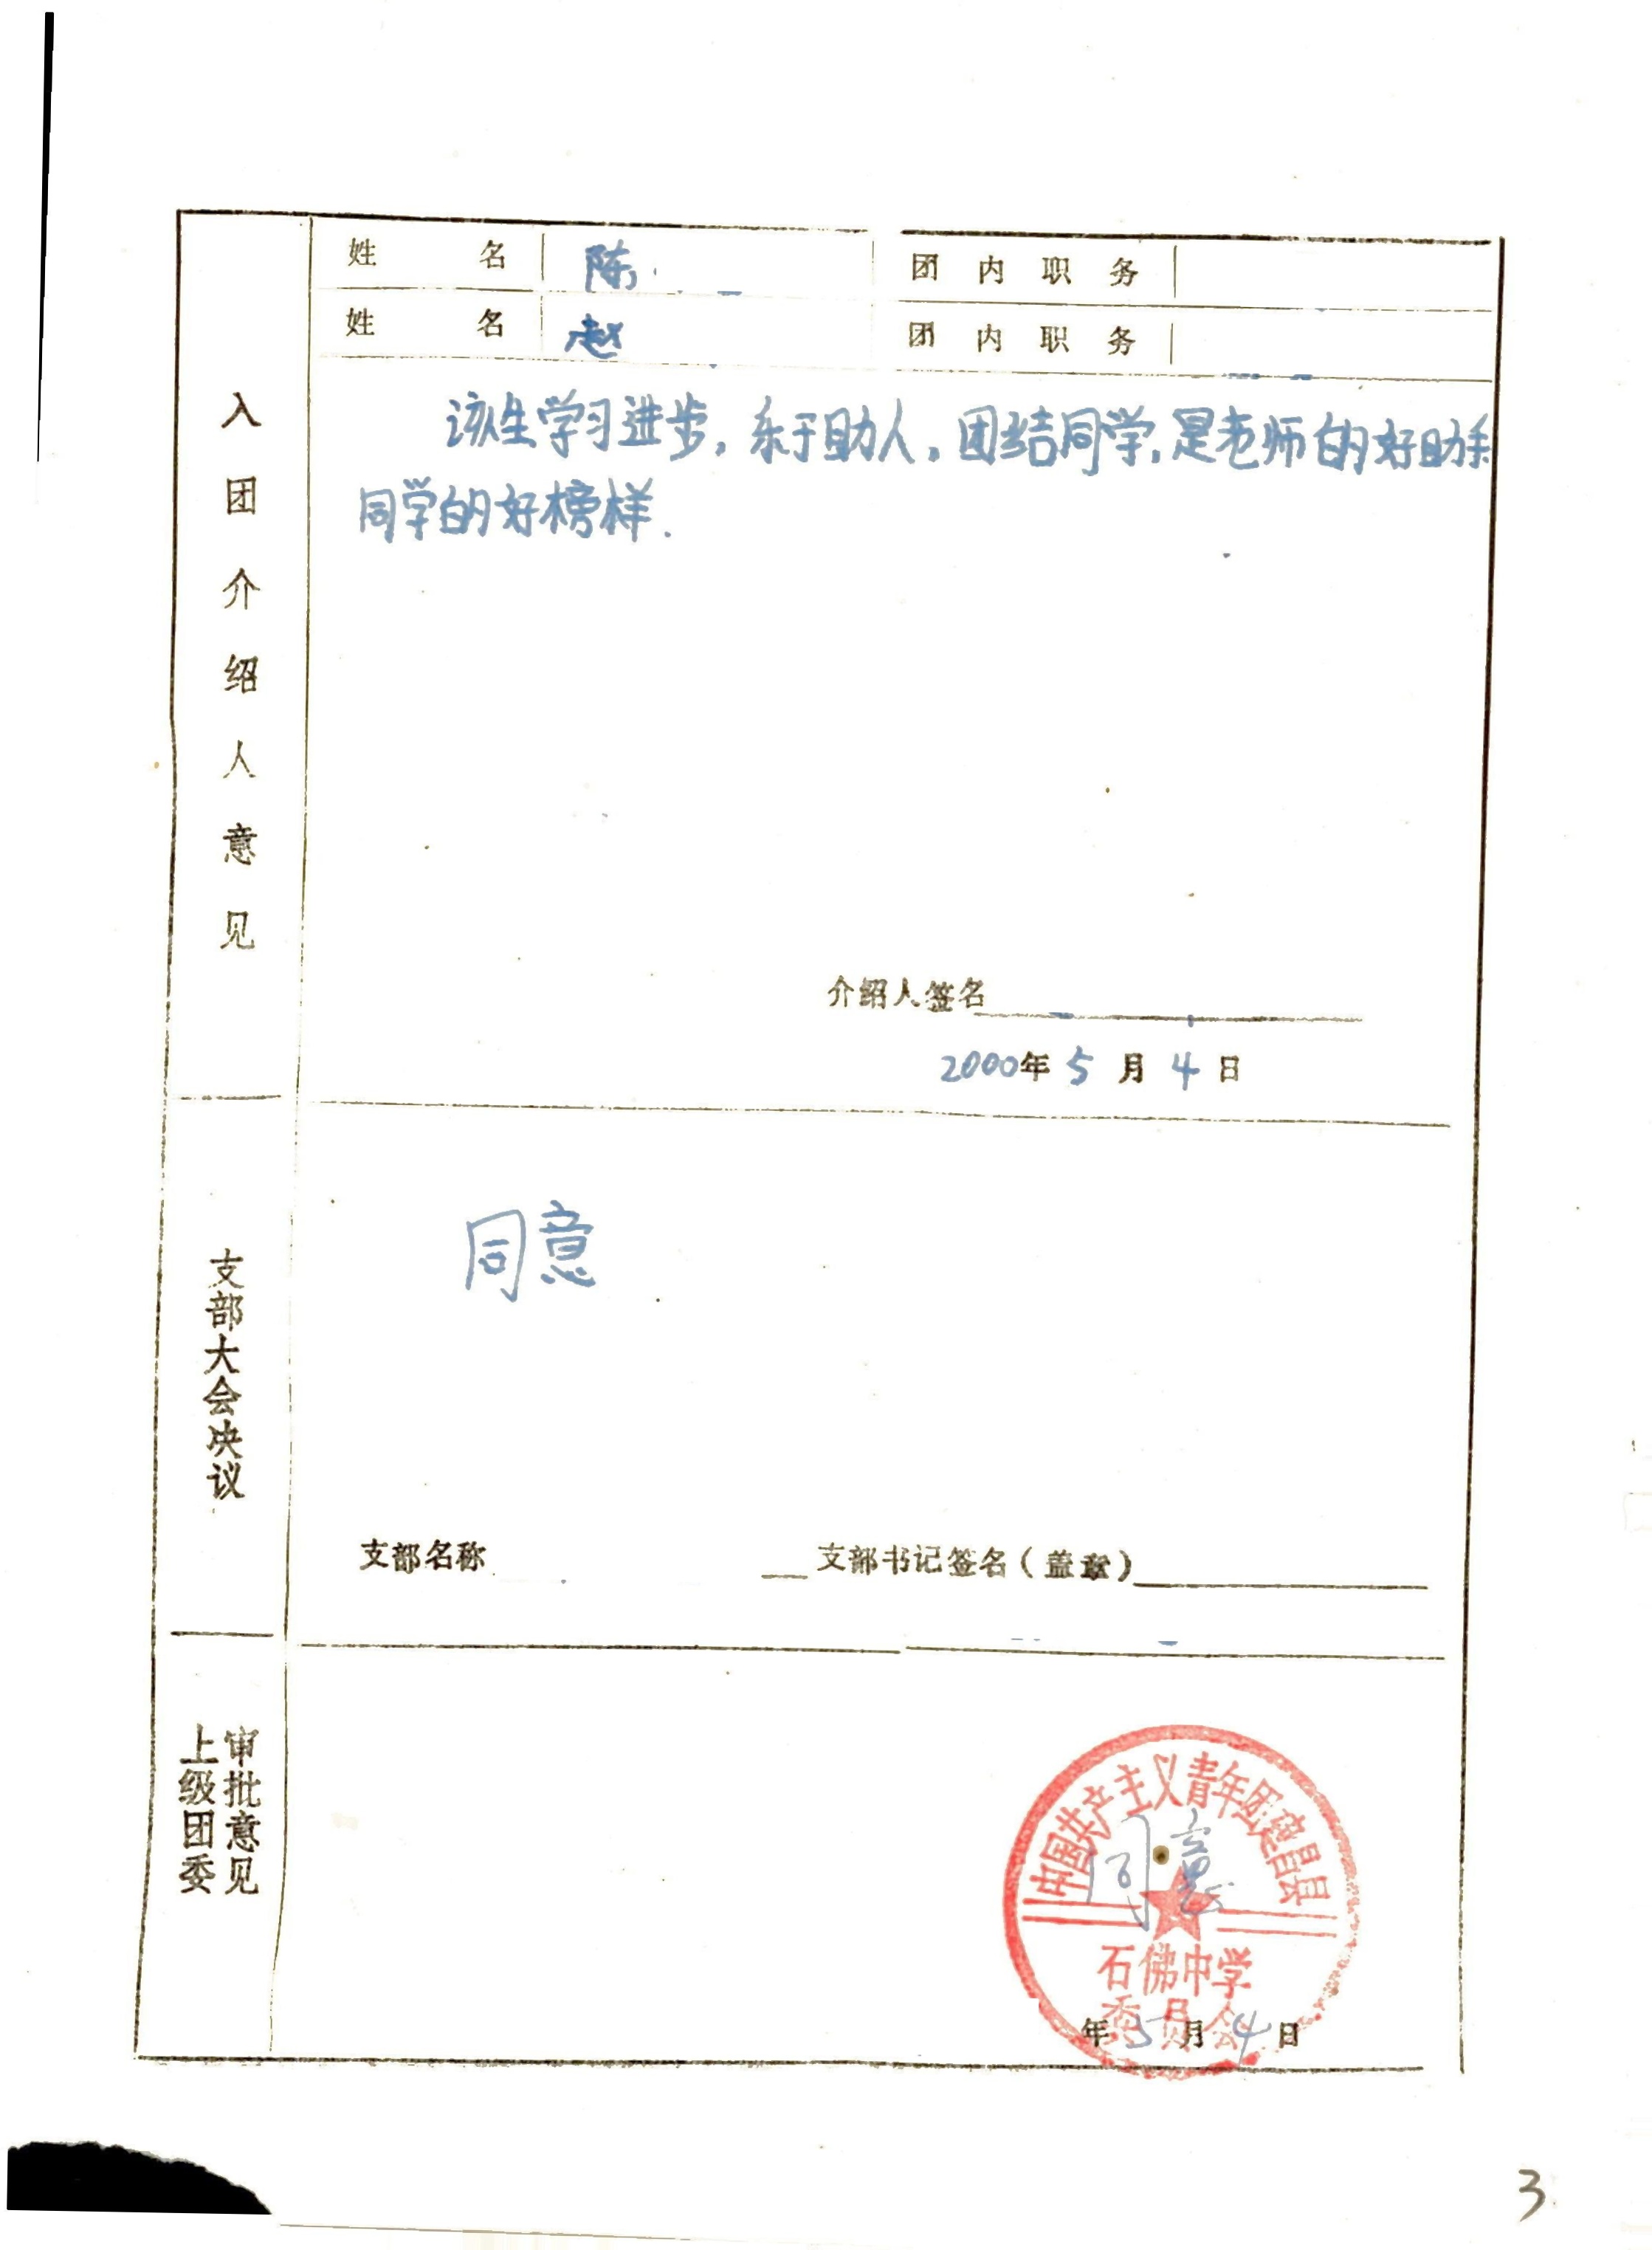 姓名 陈 团内职务
姓名 赵 团内职务
入团介绍人意见
该生学习进步，乐于助人，团结同学，是老师的好助手
同学的好榜样.
介绍人签名
2000年5月4日
支部大会决议
同意
支部名称 支部书记签名（盖章）
上级团委
审批意见
中国共产主义青年团建昌县
同意
石佛中学
委员会
年5月4日
3